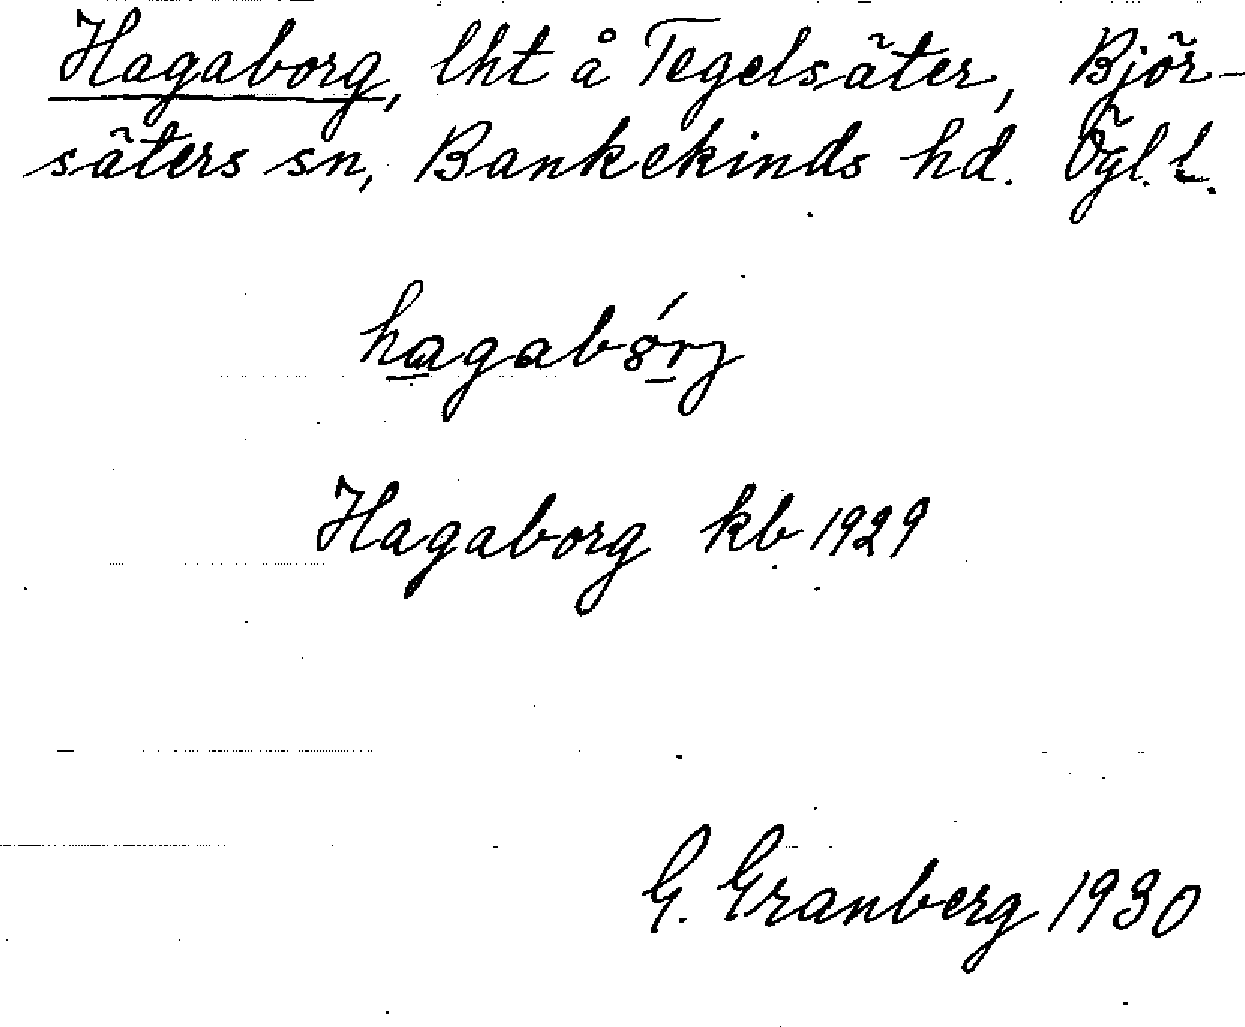 Hagaborg, lht å Tegelsäter, Björ-
säters sn, Bankekinds hd. Ögl. l.
Hagaborg kb 1929
G. Granberg 1930